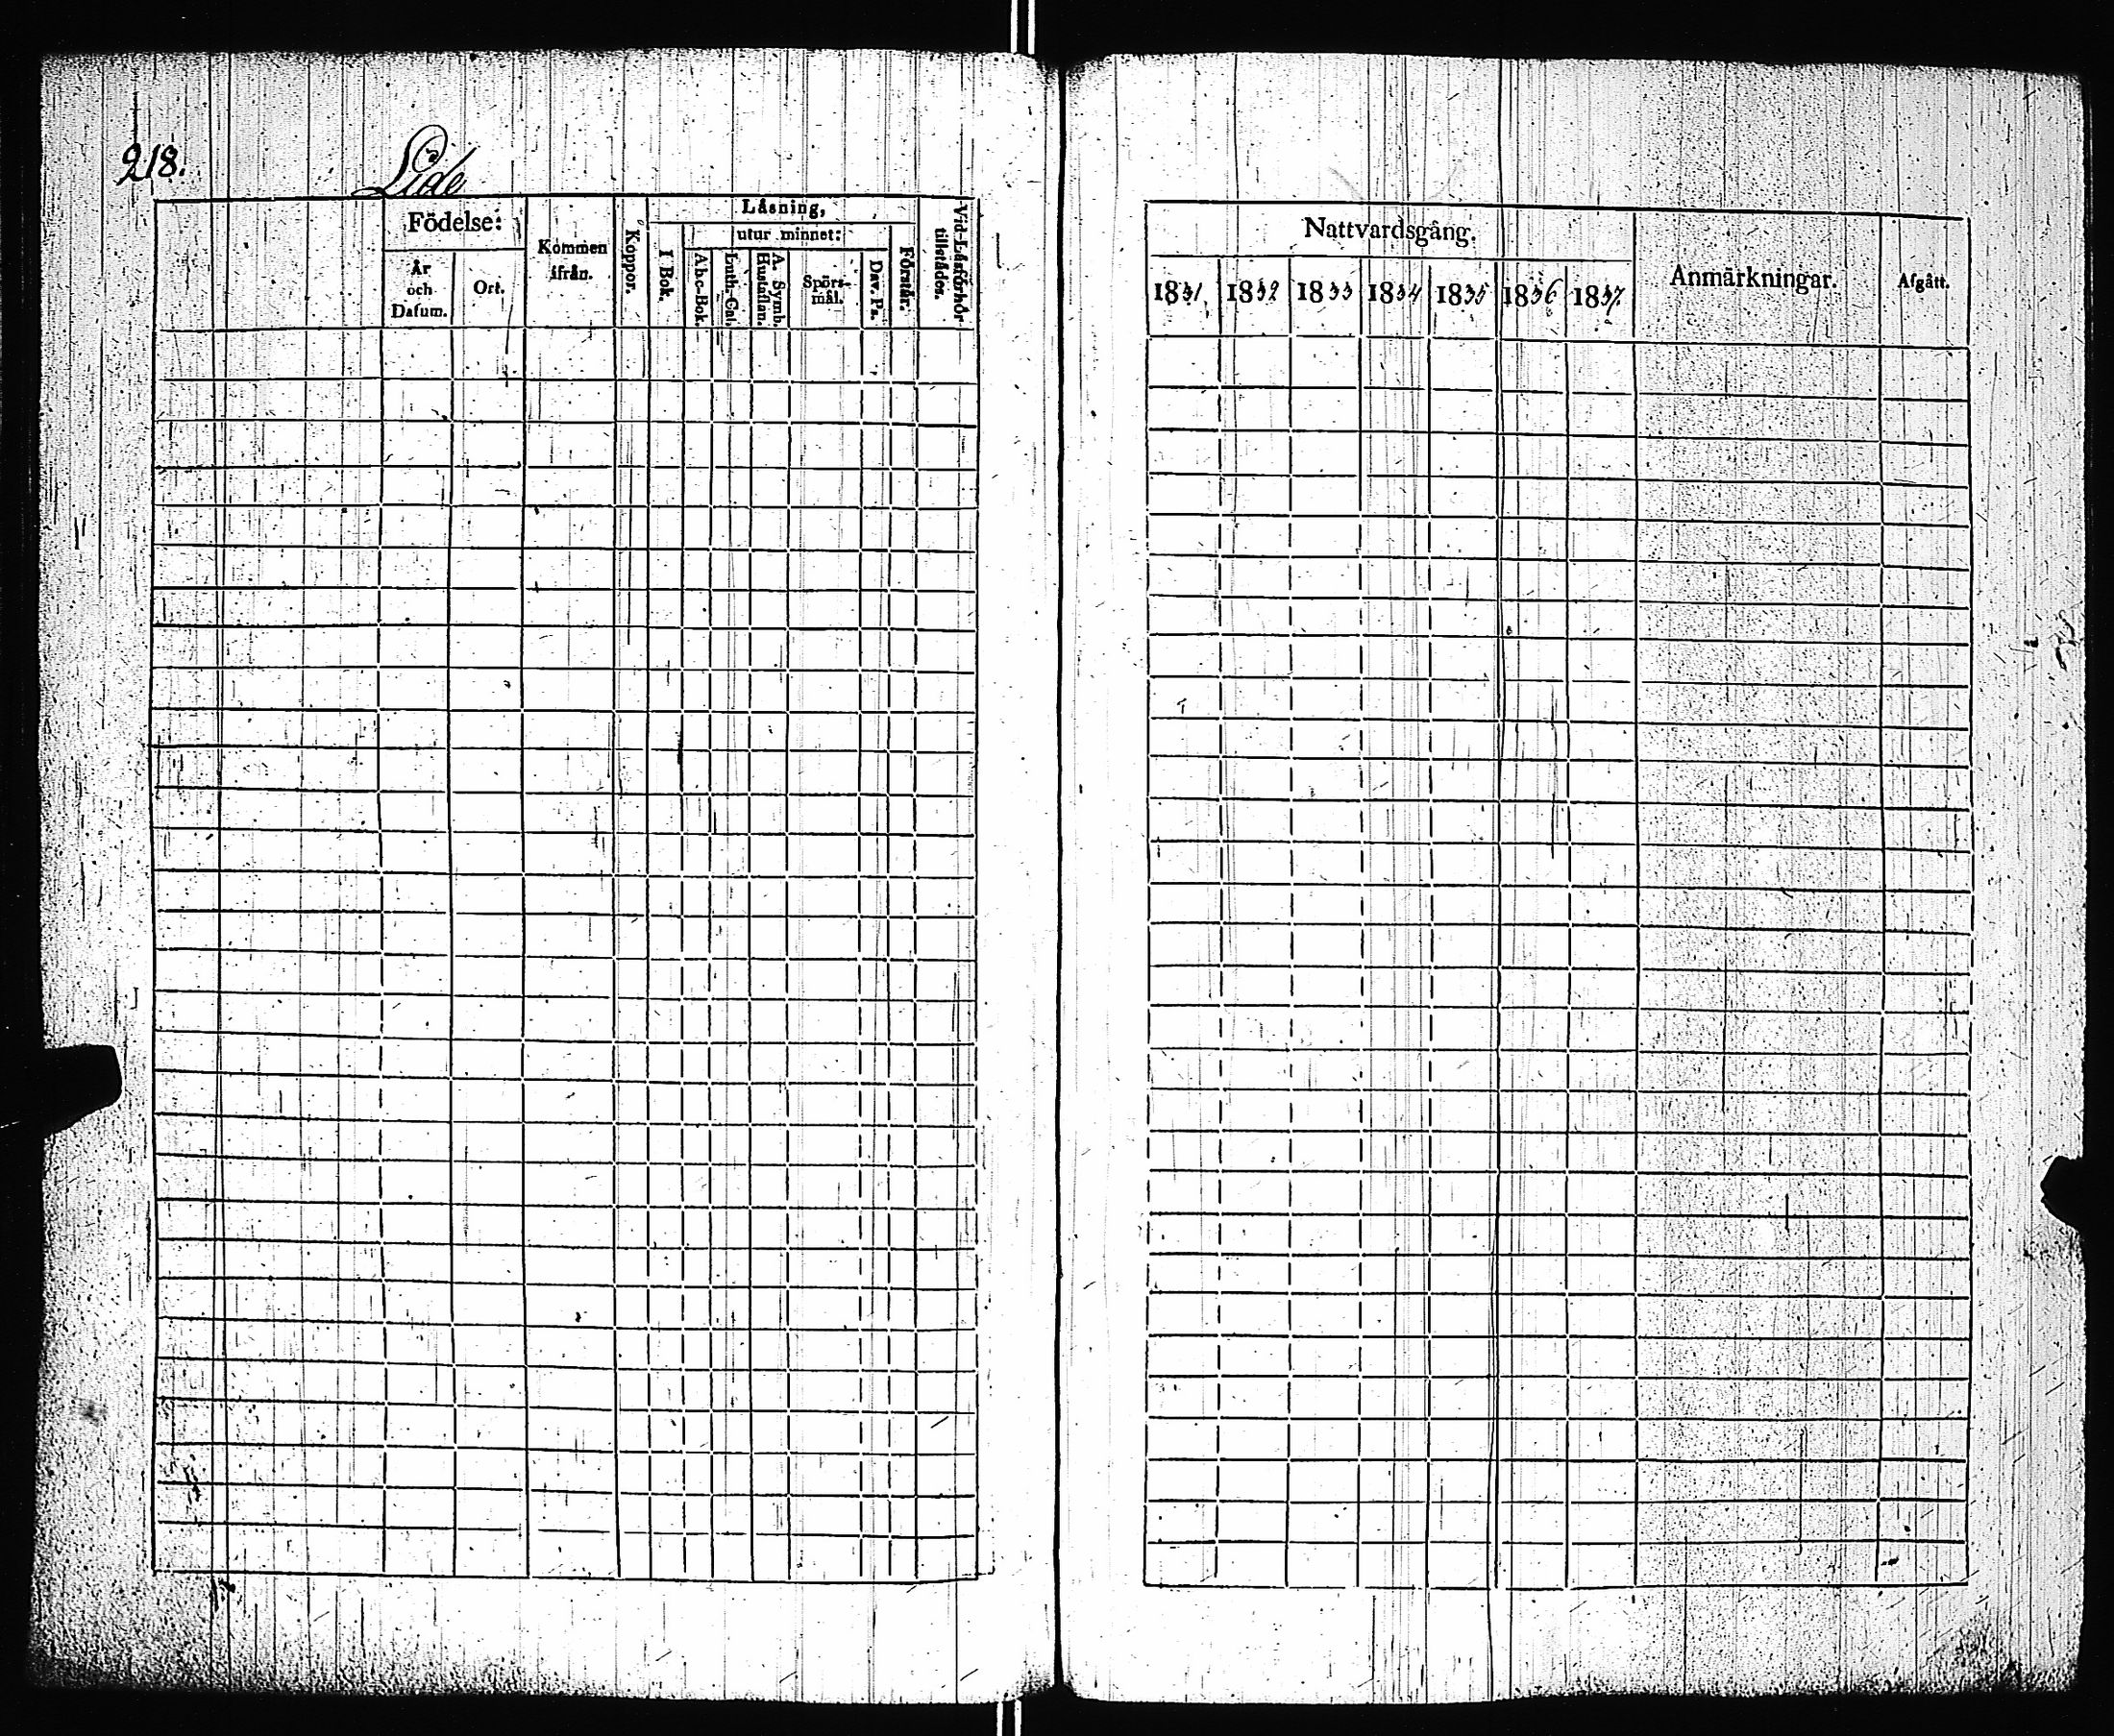 218.
Lide
Födelse:
År
och
Datum.
Ort.
Kommen
ifrån.
Koppor.
Läsning,
I Bok.
utur minnet:
Abc-Bok.
Luth. Cat.
A. Symb.
Hustaflan.
Spörs-
mål.
Dav. Ps.
Förstår.
Vid Läsförhör
tillstådes.
Nattvardsgång.
1831.
1832
1833
1834
1835
1836
1837.
Anmärkningar.
Afgått.